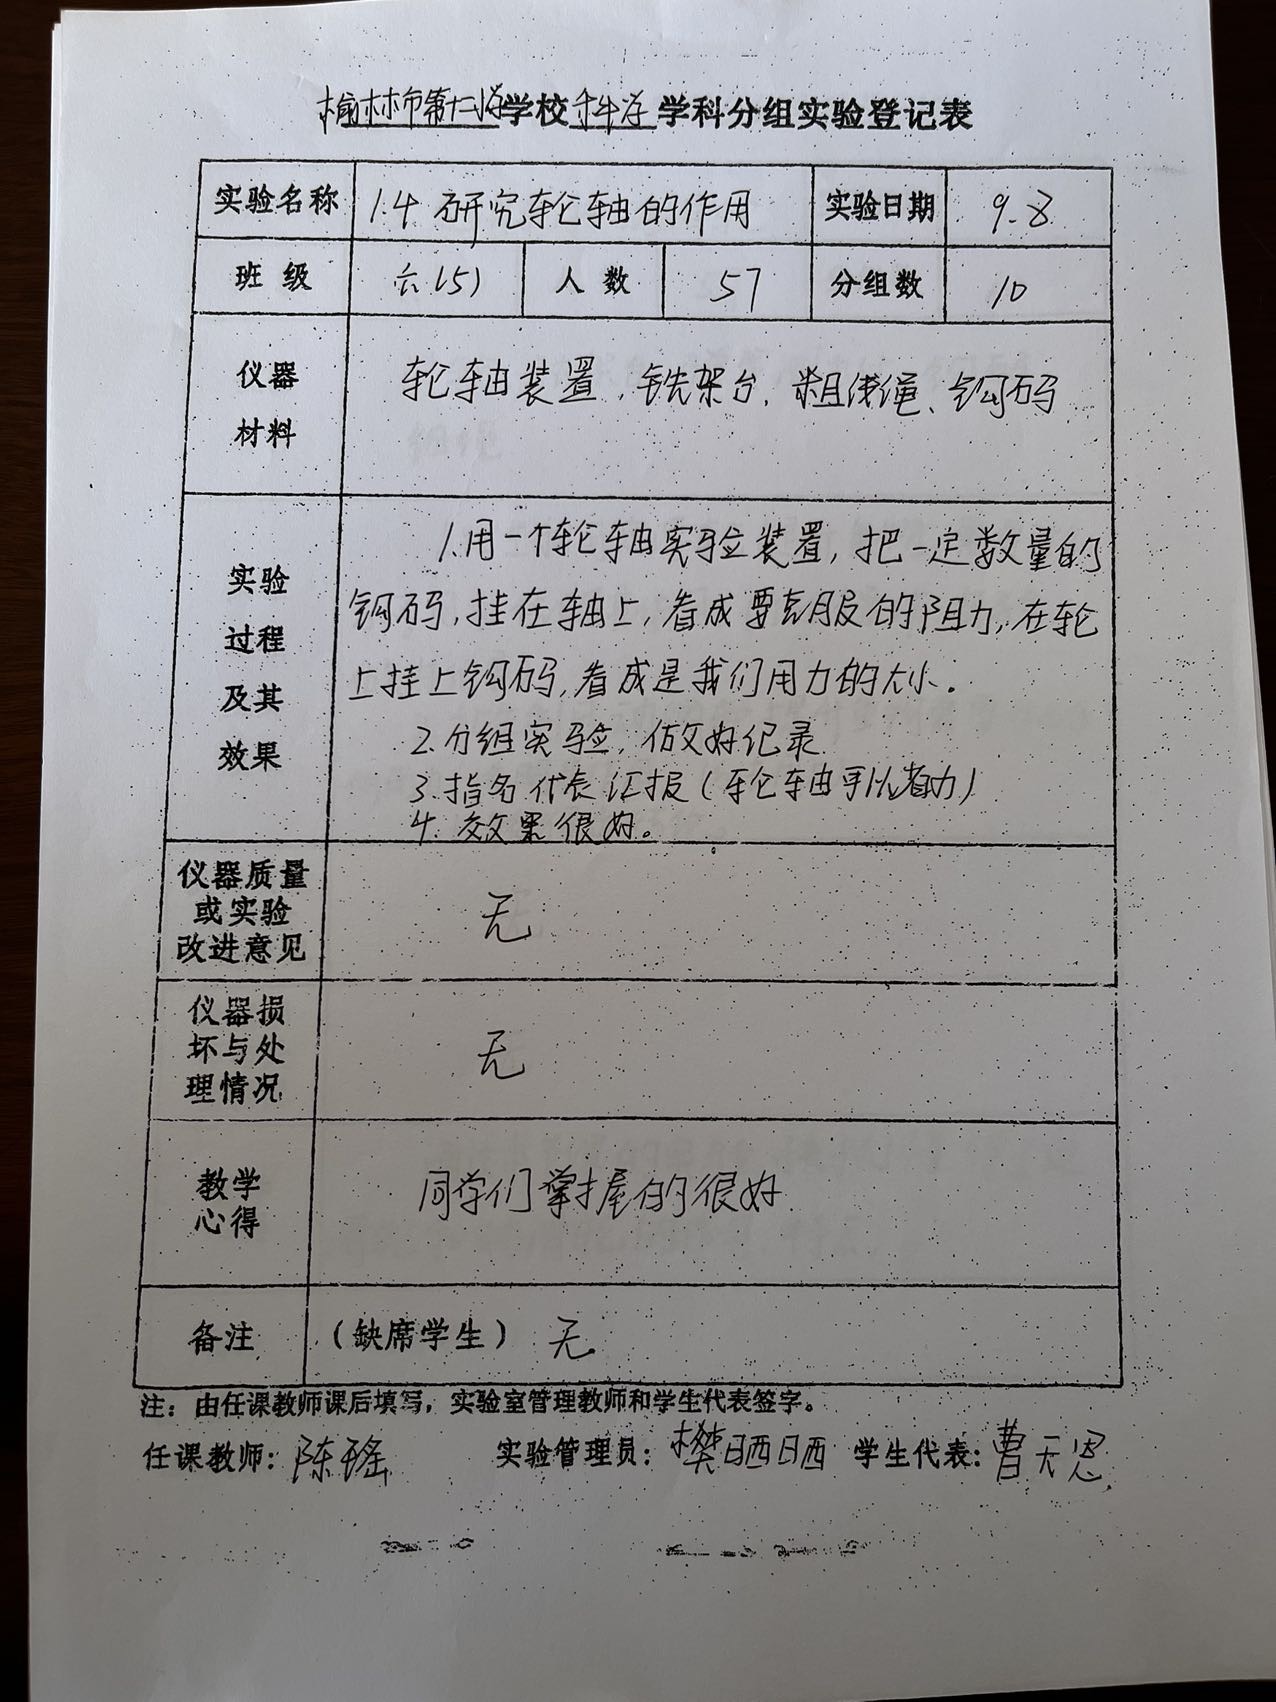 榆林市第十二小学校科学学科分组实验登记表
实验名称 1.4 研究轮轴的作用 实验日期 9.8
班级 六(5) 人数 57 分组数 10
仪器
材料
轮轴装置、铁架台、粗线绳、钩码
实验
过程
及其
效果
1.用一个轮轴实验装置,把一定数量的
钩码,挂在轴上,看成要克服的阻力,在轮
上挂上钩码,看成是我们用力的大小。
2.分组实验,做好纪录
3.指名代表汇报(轮轴可以省力)
4.效果很好。
仪器质量
或实验
改进意见
无
仪器损
坏与处
理情况
无
教学
心得
同学们掌握的很好
备注 (缺席学生) 无
注:由任课教师课后填写,实验室管理教师和学生代表签字。
任课教师:陈瑶 实验管理员:樊晒晒 学生代表:曹天恩